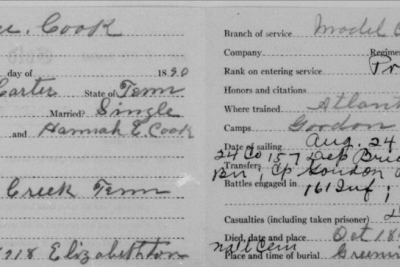 Cook
day of 1890
Carter State of Tenn
Married? Single
and Hannah E. Cook
Creek Tenn
1918 Elizabethton
Branch of service Model
Company Regime
Rank on entering service
Honors and citations
Where trained Atlant
Camps Gordon
Date of sailing Aug. 24
24 Co 157 Dep Brig
Transfers Cp Gordon
Battles engaged in 161 Inf;
Casualties (including taken prisoner)
Died, date and place Oct 18
natl Cem
Place and time of burial